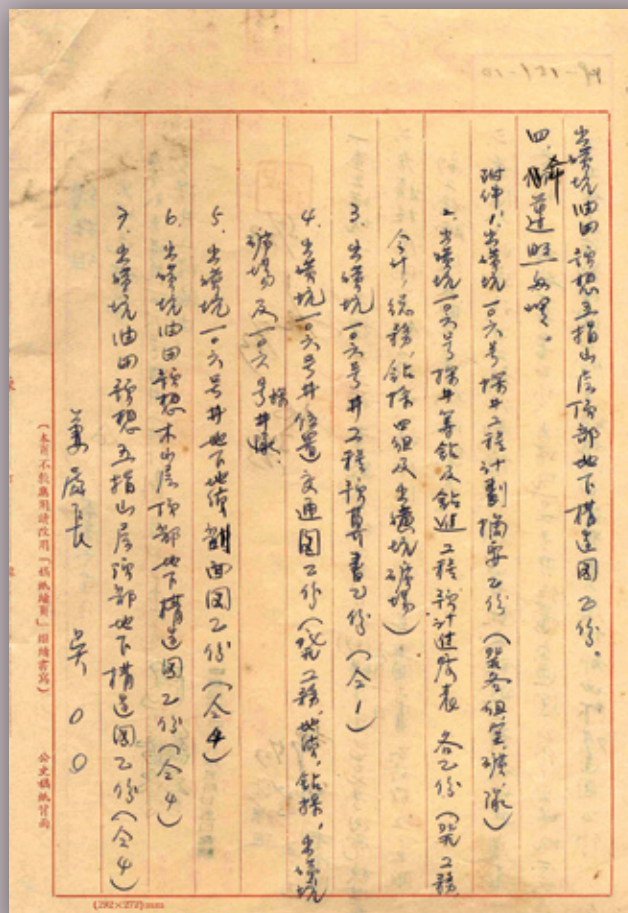 出磺坑油田預想五指山层頂部地下構造図乙份。
四.希遵照為要。
附件:1.出磺坑一〇六号探井工程计劃摘要乙份(
2.出磺坑一〇六号探井等鈷及鈷進工程預计進度表 各乙份(工務
会计,総務,鈷探四组及出磺坑礦場)
3.出磺坑一〇六号井工程預算書乙份(仝1)
4.出磺坑一〇六号井位置交通図乙份(工務,地質,鈷探,出磺坑
礦場及一〇六号探井隊
5.出磺坑一〇六号井地下地质剖面図乙份(仝4)
6.出磺坑油田預想木山层頂部地下構造図乙份(仝4)
7.出磺坑油田預想五指山层頂部地下構造図乙份(仝4)
兼處長 吳〇〇
(本頁不敷應用請改用「稿紙續頁」繼續書寫)
公文稿紙背面
(192×272)mm